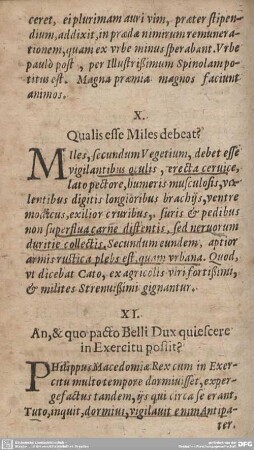 ceret, ei plurimam auri vim, præter stipen-
dium, addixit, in prædæ nimirum remunera-
tionem, quam ex vrbe minus sperabant. Vrbe
paulò post, per Illustrissimum Spinolam po-
titus est. Magna præmia magnos faciunt
animos.
X.
Qualis esse Miles debeat?
Miles, secundum Vegetium, debet esse
vigilantibus oculis, erecta cervice,
lato pectore, humeris musculosis, va-
lentibus digitis longioribus brachijs, ventre
modicus, exilior cruribus, suris & pedibus
non superflua carne distentis, sed nervorum
duritie collectis. Secundum eundem, aptior
armis rustica plebs est, quàm vrbana. Quod,
vt dicebat Cato, ex agricolis viri fortissimi,
& milites Strenuissimi gignantur.
XI.
An, & quo pacto Belli Dux quiescere
in Exercitu possit?
Philippus Macedoniæ Rex cum in Exer-
citu multo tempore dormiuisset, exper-
gefactus tandem, ijs qui circa se erant,
Tuto, inquit, dormiui, vigilauit enim Antipa-
ter.